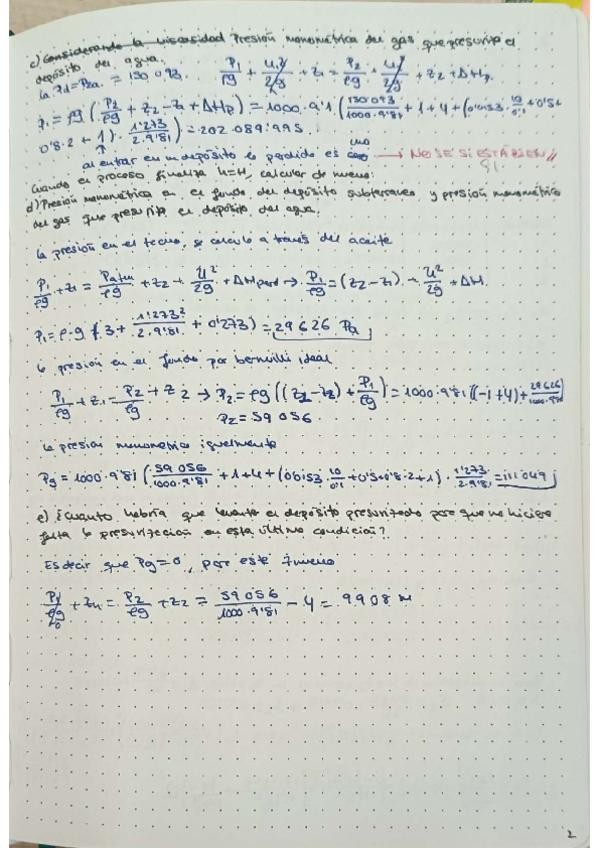 c) Considerando la viscosidad Presión manométrica del gas que presuriza el
depósito del agua.
la P1=P2a = 130 093. P1/ρg + u1²/2g + z1 = P2/ρg + u2²/2g + z2 + ΔHp
P1 = ρg (P2/ρg + z2 - z1 + ΔHp) = 1000·9'81 (130 093/1000·9'81 + 1 + 4 + (0'0153·10/0'1 + 0'5+
0'8·2 + 1)·1'273/2·9'81) = 202 089'995
uno
al entrar en un depósito la perdida es → NO SE SI ESTÁ BIEN!!
SI
Cuando el proceso finaliza h=H, calcular de nuevo:
d) Presión manométrica en el fondo del depósito subterraneo y presión manométrica
del gas que presuriza el depósito del agua.
la presión en el techo, se calcula a través del aceite
P1/ρg + z1 = Patm/ρg + z2 + u²/2g + ΔHperd → P1/ρg = (z2-z1) + u²/2g + ΔH
P1 = ρ·g (3 + 1'273²/2·9'81 + 0'273) = 29 626 Pa
la presión en el fondo por bernulli ideal
P1/ρg + z1 = P2/ρg + z2 → P2 = ρg ((z1-z2) + P1/ρg) = 1000·9'81 ((-1+4) + 29626/1000·9'81)
P2 = 59 056.
la presion manometrica igualmente
Pg = 1000·9'81 (59 056/1000·9'81 + 1+4 + (0'0153·10/0'1 + 0'5+0'8·2+1)·1'273/2·9'81 = 111 049
e) ¿Cuanto habría que levantar el depósito presurizado para que no hiciera
falta la presurización en esta última condición?
Es decir que Pg=0, por este
Pg/ρg + z4 = P2/ρg + z2 = 59 056/1000·9'81 - 4 = 9'908 m
2